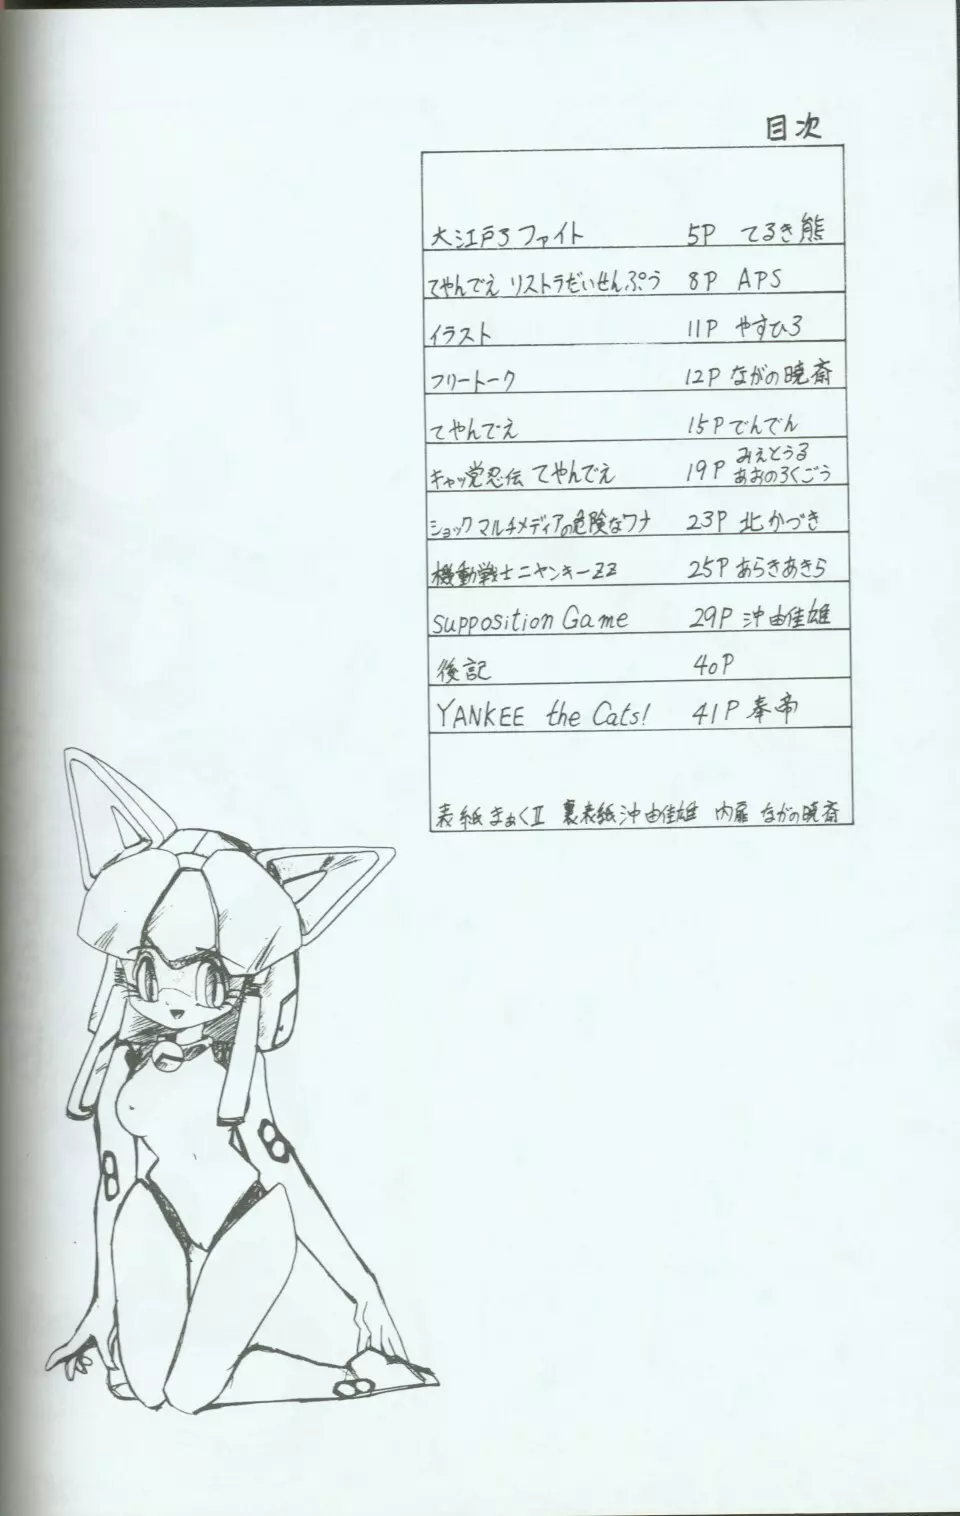 目次
大江戸ろファイト 5P てるき熊
てやんでえ リストラだいせんぷう 8P APS
イラスト 11P やすひろ
フリートーク 12P ながの暁斎
てやんでえ 15P でんでん
キャッ党忍伝 てやんでえ 19P みえとうる あおのろくごう
ショック マルチメディアの危険なワナ 23P 北かづき
機動戦士ニャンキーZZ 25P あらきあきら
Supposition Game 29P 沖由佳雄
後記 40P
YANKEE the Cats! 41P 奉帝
表紙 まぁくII 裏表紙 沖由佳雄 内扉 ながの暁斎